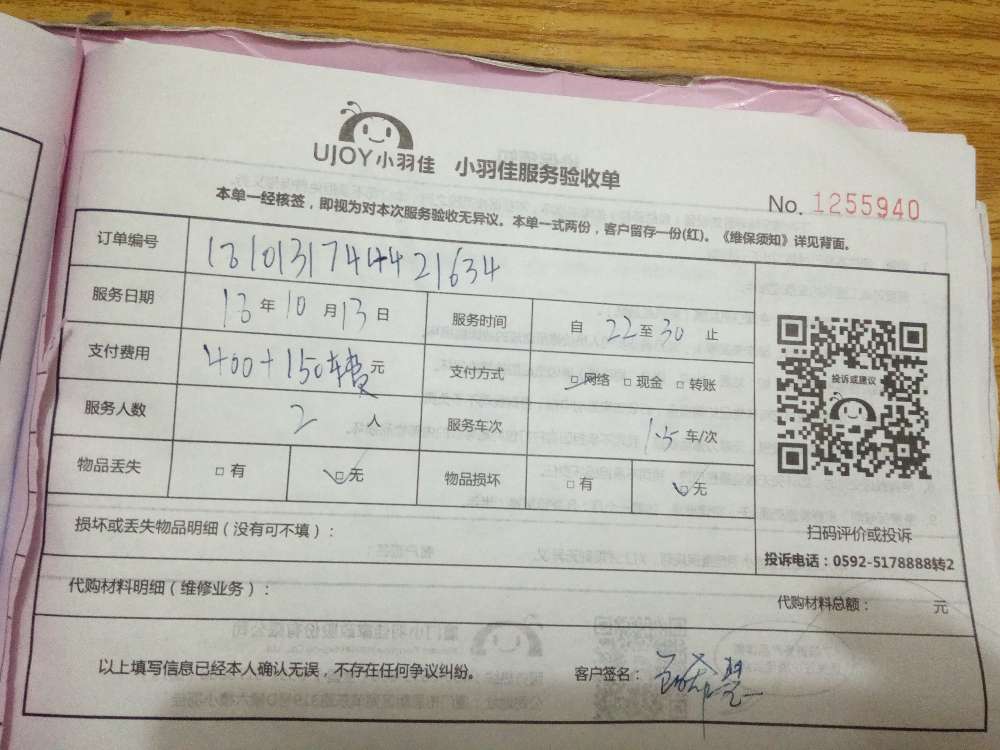 UJOY小羽佳 小羽佳服务验收单
No. 1255940
本单一经核签，即视为对本次服务验收无异议。本单一式两份，客户留存一份(红)。《维保须知》详见背面。
订单编号 1810131744421634
服务日期 18年10月13日 服务时间 自 22至30止
支付费用 400+150车费元 支付方式 网络 现金 转账
投诉或建议
服务人数 2人 服务车次 1.5车/次
物品丢失 有 无 物品损坏 有 无
损坏或丢失物品明细（没有可不填）：
扫码评价或投诉
投诉电话：0592-5178888转2
代购材料明细（维修业务）：
代购材料总额： 元
以上填写信息已经本人确认无误，不存在任何争议纠纷。 客户签名：